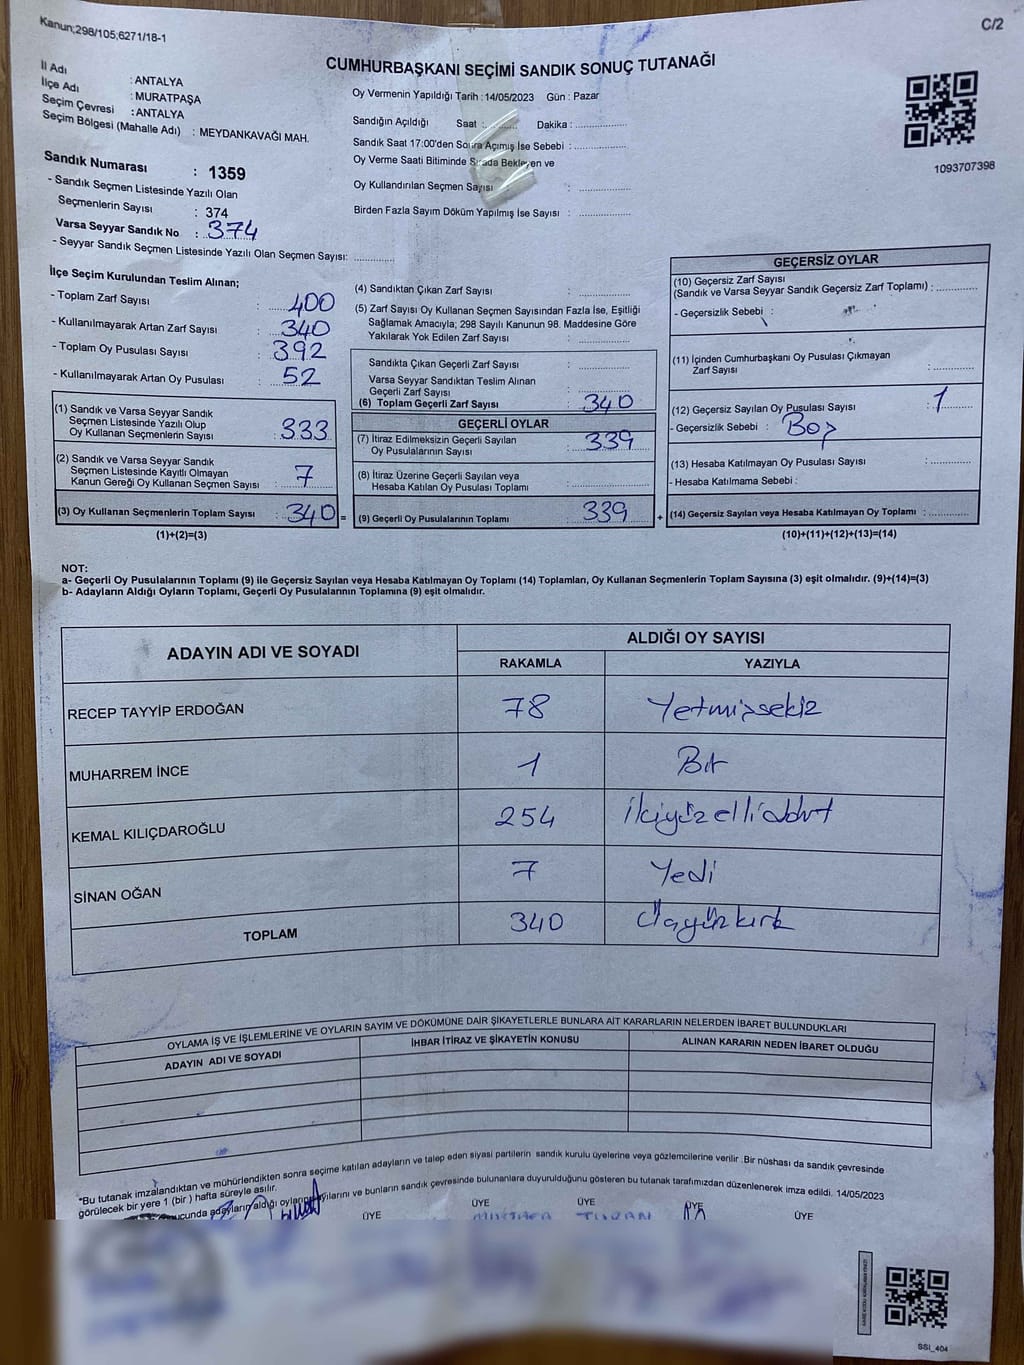 Kanun;298/105;6271/18-1
C/2
CUMHURBAŞKANI SEÇİMİ SANDIK SONUÇ TUTANAĞI
İl Adı : ANTALYA
İlçe Adı : MURATPAŞA
Seçim Çevresi : ANTALYA
Seçim Bölgesi (Mahalle Adı) : MEYDANKAVAĞI MAH.
Sandık Numarası : 1359
- Sandık Seçmen Listesinde Yazılı Olan
Seçmenlerin Sayısı : 374
Varsa Seyyar Sandık No : 374
- Seyyar Sandık Seçmen Listesinde Yazılı Olan Seçmen Sayısı: ..............
Oy Vermenin Yapıldığı Tarih : 14/05/2023 Gün : Pazar
Sandığın Açıldığı Saat : ........... Dakika : ..............
Sandık Saat 17:00'den Sonra Açımış İse Sebebi : ..............
Oy Verme Saati Bitiminde Sırada Bekleyen ve
Oy Kullandırılan Seçmen Sayısı : ..............
Birden Fazla Sayım Döküm Yapılmış İse Sayısı : ..............
1093707398
İlçe Seçim Kurulundan Teslim Alınan;
- Toplam Zarf Sayısı : 400
- Kullanılmayarak Artan Zarf Sayısı : 340
- Toplam Oy Pusulası Sayısı : 392
- Kullanılmayarak Artan Oy Pusulası : 52
(1) Sandık ve Varsa Seyyar Sandık
Seçmen Listesinde Yazılı Olup
Oy Kullanan Seçmenlerin Sayısı : 333
(2) Sandık ve Varsa Seyyar Sandık
Seçmen Listesinde Kayıtlı Olmayan
Kanun Gereği Oy Kullanan Seçmen Sayısı : 7
(3) Oy Kullanan Seçmenlerin Toplam Sayısı : 340 =
(1)+(2)=(3)
(4) Sandıktan Çıkan Zarf Sayısı : ..............
(5) Zarf Sayısı Oy Kullanan Seçmen Sayısından Fazla İse, Eşitliği
Sağlamak Amacıyla; 298 Sayılı Kanunun 98. Maddesine Göre
Yakılarak Yok Edilen Zarf Sayısı : ..............
Sandıkta Çıkan Geçerli Zarf Sayısı : ..............
Varsa Seyyar Sandıktan Teslim Alınan
Geçerli Zarf Sayısı : ..............
(6) Toplam Geçerli Zarf Sayısı : 340
GEÇERLİ OYLAR
(7) İtiraz Edilmeksizin Geçerli Sayılan
Oy Pusulalarının Sayısı : 339
(8) İtiraz Üzerine Geçerli Sayılan veya
Hesaba Katılan Oy Pusulası Toplamı : ..............
(9) Geçerli Oy Pusulalarının Toplamı : 339 +
GEÇERSİZ OYLAR
(10) Geçersiz Zarf Sayısı
(Sandık ve Varsa Seyyar Sandık Geçersiz Zarf Toplamı) : ..............
- Geçersizlik Sebebi :
(11) İçinden Cumhurbaşkanı Oy Pusulası Çıkmayan
Zarf Sayısı : ..............
(12) Geçersiz Sayılan Oy Pusulası Sayısı : 1
- Geçersizlik Sebebi : Boş
(13) Hesaba Katılmayan Oy Pusulası Sayısı : ..............
- Hesaba Katılmama Sebebi :
(14) Geçersiz Sayılan veya Hesaba Katılmayan Oy Toplamı : ..............
(10)+(11)+(12)+(13)=(14)
NOT:
a- Geçerli Oy Pusulalarının Toplamı (9) ile Geçersiz Sayılan veya Hesaba Katılmayan Oy Toplamı (14) Toplamları, Oy Kullanan Seçmenlerin Toplam Sayısına (3) eşit olmalıdır. (9)+(14)=(3)
b- Adayların Aldığı Oyların Toplamı, Geçerli Oy Pusulalarının Toplamına (9) eşit olmalıdır.
ADAYIN ADI VE SOYADI ALDIĞI OY SAYISI
RAKAMLA YAZIYLA
RECEP TAYYİP ERDOĞAN 78 Yetmişsekiz
MUHARREM İNCE 1 Bir
KEMAL KILIÇDAROĞLU 254 İkiyüzellidört
SİNAN OĞAN 7 Yedi
TOPLAM 340 Üçyüzkırk
OYLAMA İŞ VE İŞLEMLERİNE VE OYLARIN SAYIM VE DÖKÜMÜNE DAİR ŞİKAYETLERLE BUNLARA AİT KARARLARIN NELERDEN İBARET BULUNDUKLARI
ADAYIN ADI VE SOYADI İHBAR İTİRAZ VE ŞİKAYETİN KONUSU ALINAN KARARIN NEDEN İBARET OLDUĞU
"Bu tutanak imzalandıktan ve mühürlendikten sonra seçime katılan adayların ve talep eden siyasi partilerin sandık kurulu üyelerine veya gözlemcilerine verilir .Bir nüshası da sandık çevresinde
görülecek bir yere 1 (bir ) hafta süreyle asılır.
ucunda adayların aldığı oyların sayılarını ve bunların sandık çevresinde bulunanlara duyurulduğunu gösteren bu tutanak tarafımızdan düzenlenerek imza edildi. 14/05/2023
ÜYE ÜYE ÜYE ÜYE ÜYE
SSI_404